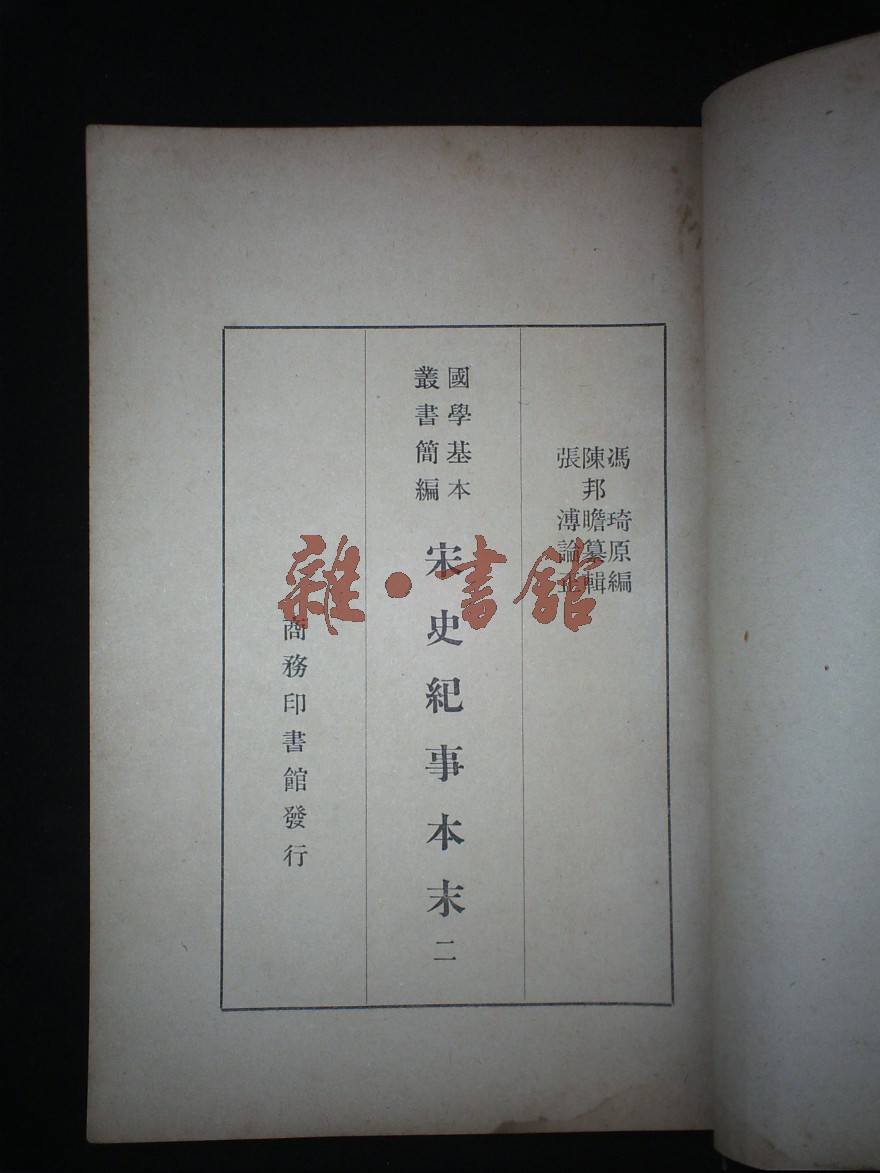 馮琦原編
陳邦瞻纂輯
張溥論正
國學基本
叢書簡編
宋史紀事本末二
商務印書館發行
雜·書館